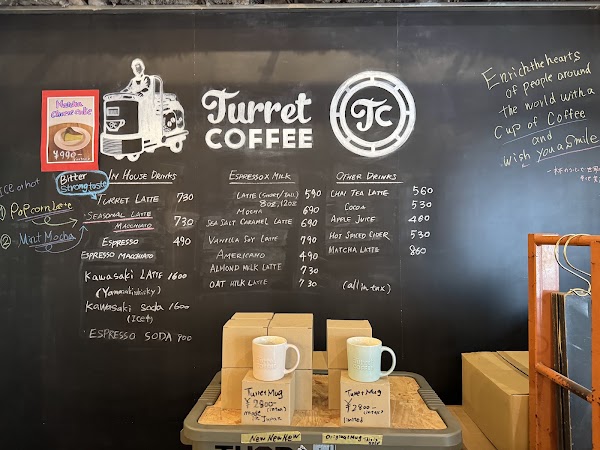 Turret
COFFEE
TC
Enrich the hearts
of people around
the world with a
Cup of Coffee
and
wish you a Smile
¥990-
Bitter
Strong taste
ICE or hot
① Popcorn Latte
② Mint Mocha
IN HOUSE DRINKS
TURRET LATTE 730
SEASONAL LATTE
MACCHIATO 730
ESPRESSO 490
ESPRESSO MACCHIATO
KAWASAKI LATTE 1600
(Yamazaki whisky)
KAWASAKI SODA 1600
(Ice)
ESPRESSO SODA 900
ESPRESSO X MILK
LATTE (SHORT/TALL) 590
8oz/12oz
MOCHA 690
SEA SALT CARAMEL LATTE 690
VANILLA SOY LATTE 790
AMERICANO 490
ALMOND MILK LATTE 730
OAT MILK LATTE 730
OTHER DRINKS
CHAI TEA LATTE 560
COCOA 530
APPLE JUICE 460
HOT SPICED CIDER 530
MATCHA LATTE 860
(all in tax)
Turret Mug
¥2800-
(in tax)
made in Japan
Turret Mug
¥2800-
(in tax)
limited
New New New
Original Mug